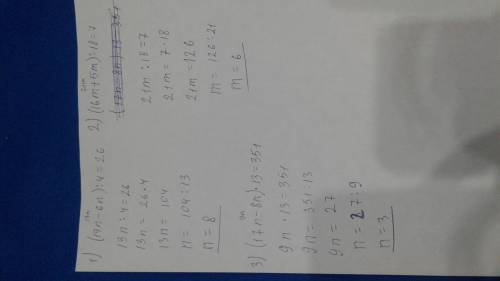 1) (19n-6n):4=26
13n:4=26
13n=26·4
13n=104
n=104:13
n=8
2) (16m+5m):18=7
21m:18=7
21m=7·18
21m=126
m=126:21
m=6
3) (17n-8n)·13=351
9n·13=351
9n=351:13
9n=27
n=27:9
n=3